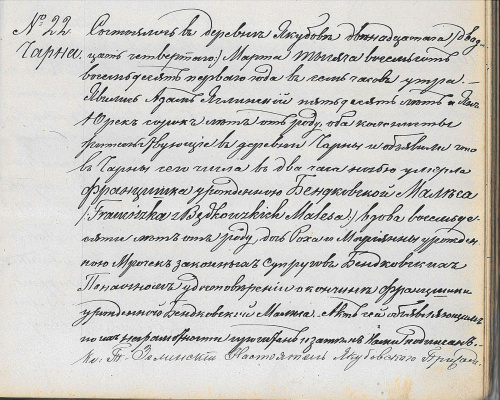 № 22 Состоялось въ деревнѣ Якубовѣ двѣнадцатаго (двад-
Чарна. цать четвертаго) Марта тысяча восемьсотъ
восемьдесятъ перваго года въ семь часовъ утра. –
Явились Адамъ пятьдесятъ лѣтъ и Янъ
Юрекъ сорокъ лѣтъ отъ роду, оба колонисты
жительствующіе въ деревнѣ Чарны и объявили что
въ Чарны сего числа въ два часа ночью умерла
Францишка урожденною Бендковской Малѣса
/Franciszka z Będkowskich Malesa/ вдова восемьде-
сяти лѣтъ отъ роду, дочь Роха и Маріанны урожден-
ною Мрочекъ законныхъ Супруговъ Бендковскихъ
По удостовѣреніи о кончинѣ Францишки
урожденной Бендковской Малѣса. Актъ сей объявляющимъ
по ихъ неграмотности прочитанъ и затѣмъ Нами подписанъ. –
Кс. Т. Зелинскій Настоятель Якубовского Прихода.